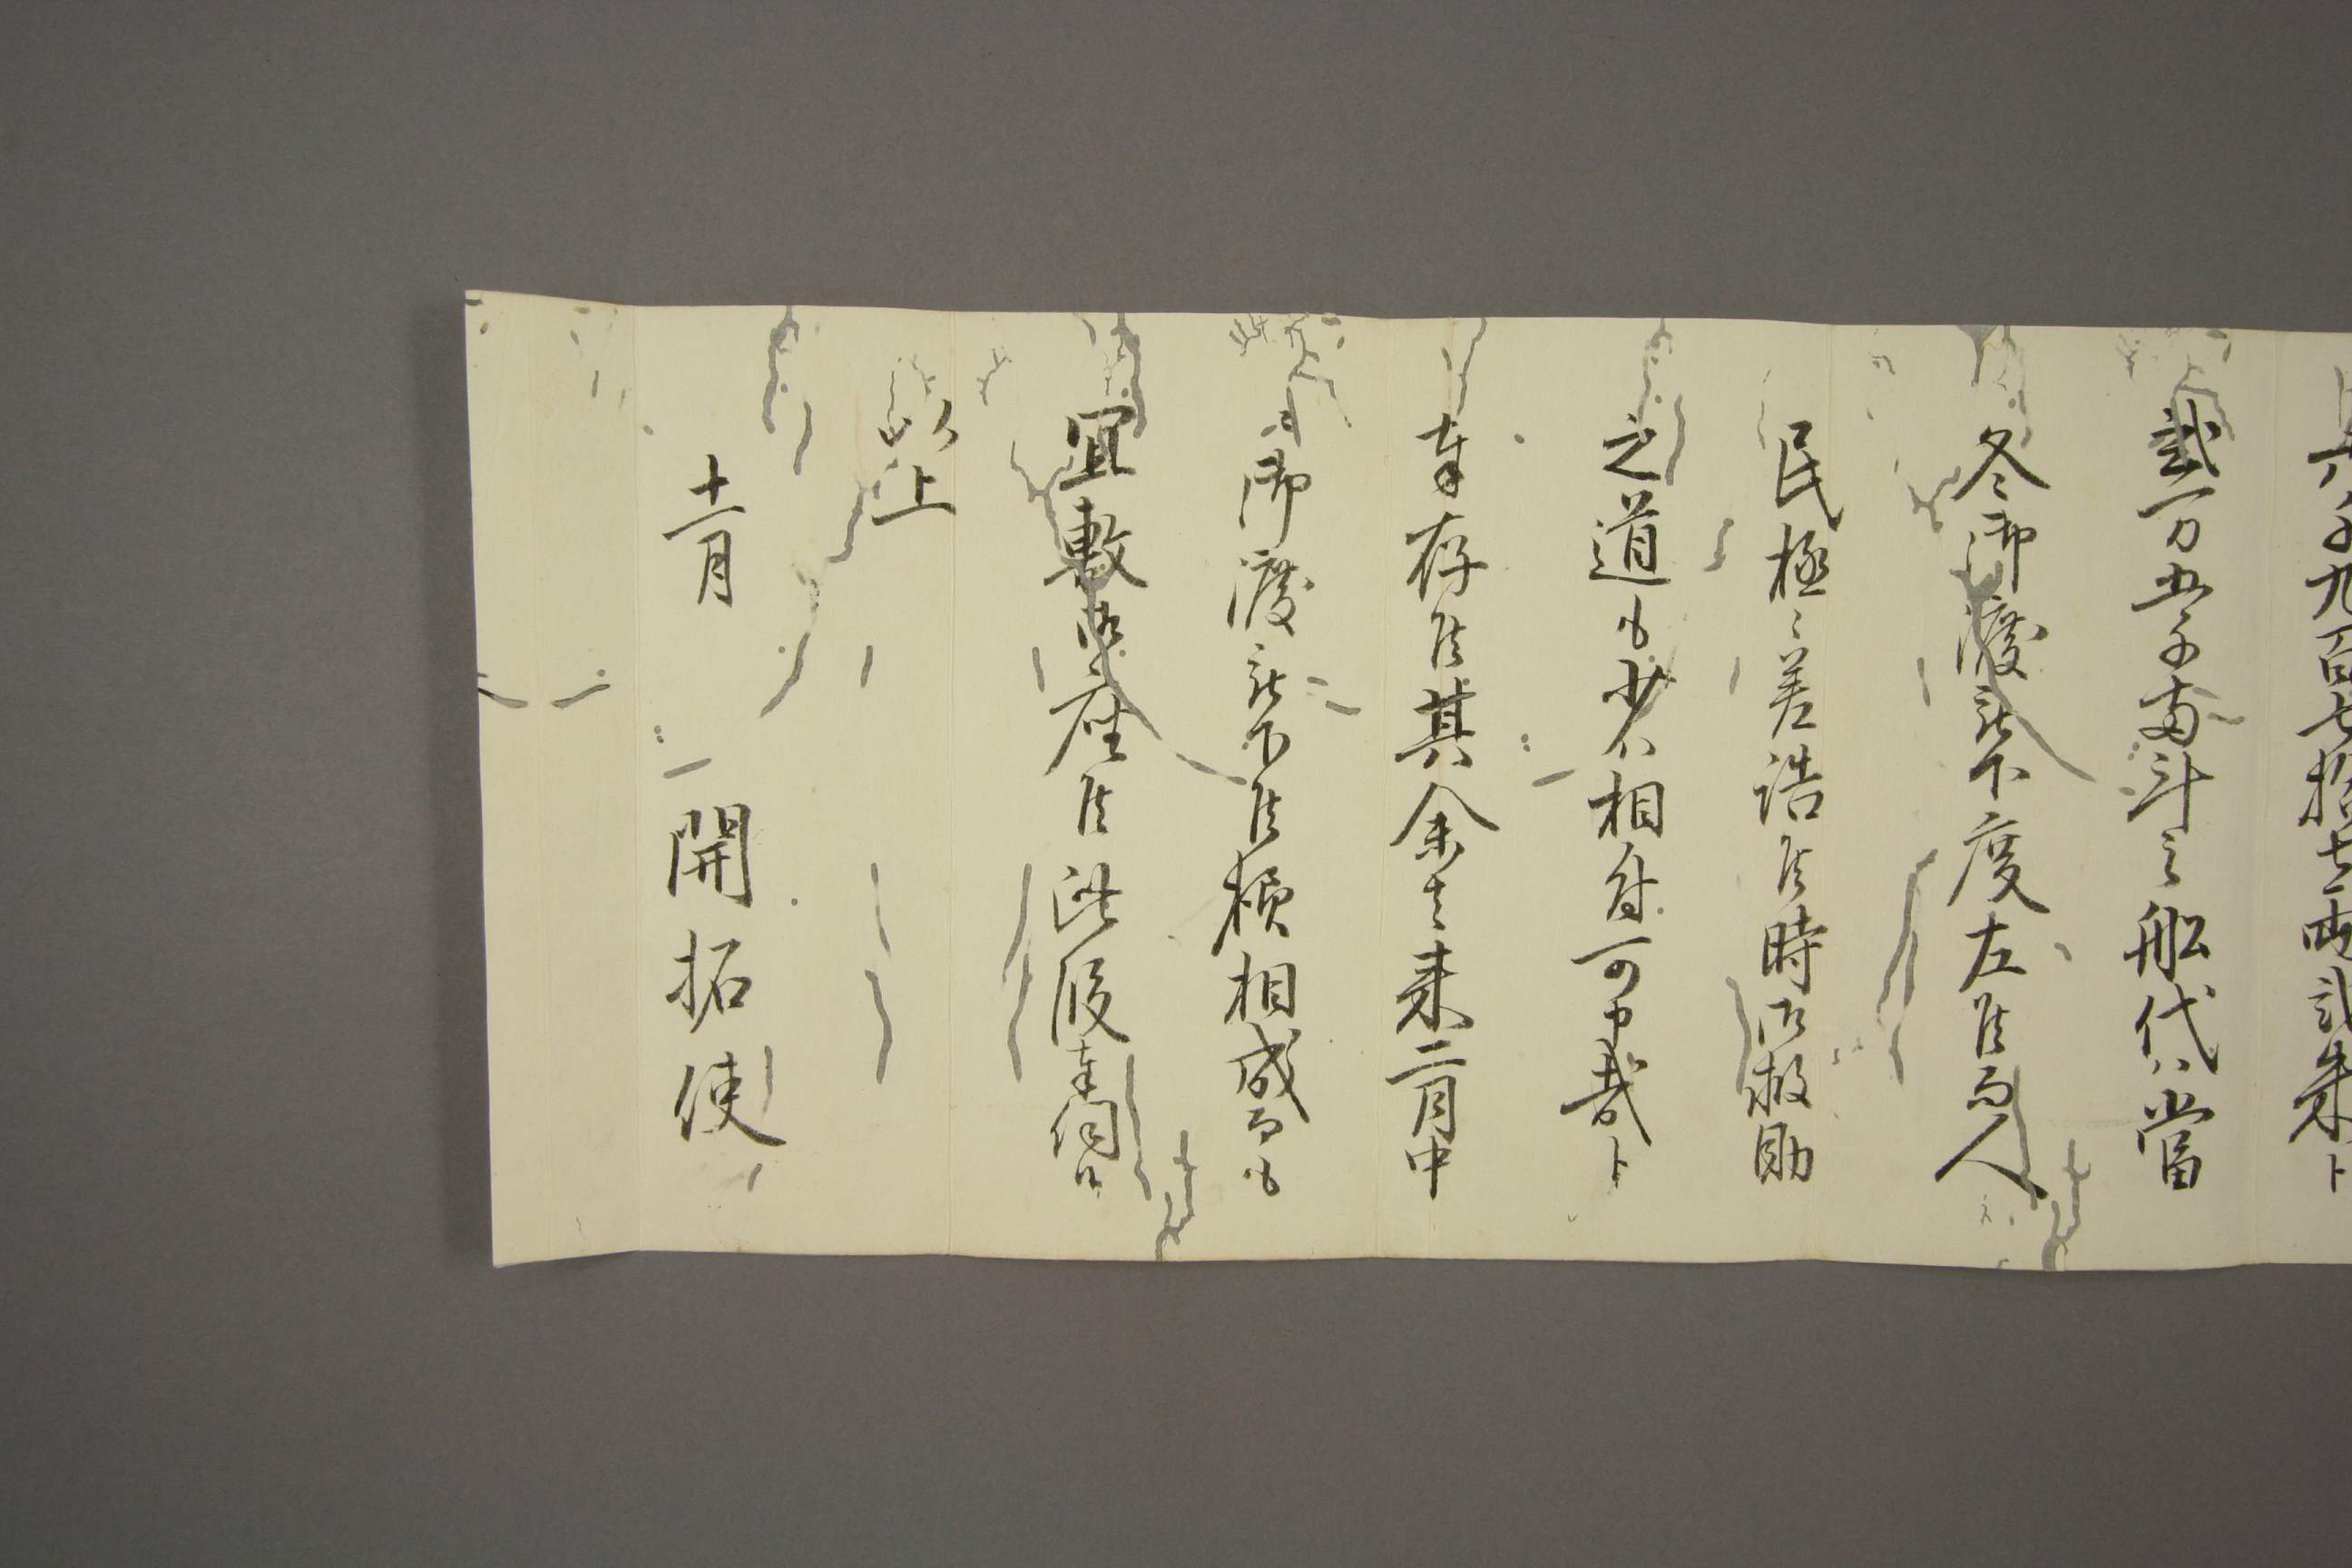 六千九百七拾七両弐朱ト
弐万五千両斗之船代ハ當
冬御渡被下度左候ハヽ人
民極々差詰候時御救助
之道も少ハ相付可申哉ト
奉存候其余ハ来二月中
御渡被下候様相成而も
宜敷御座候此段奉伺候
以上
十一月　開拓使